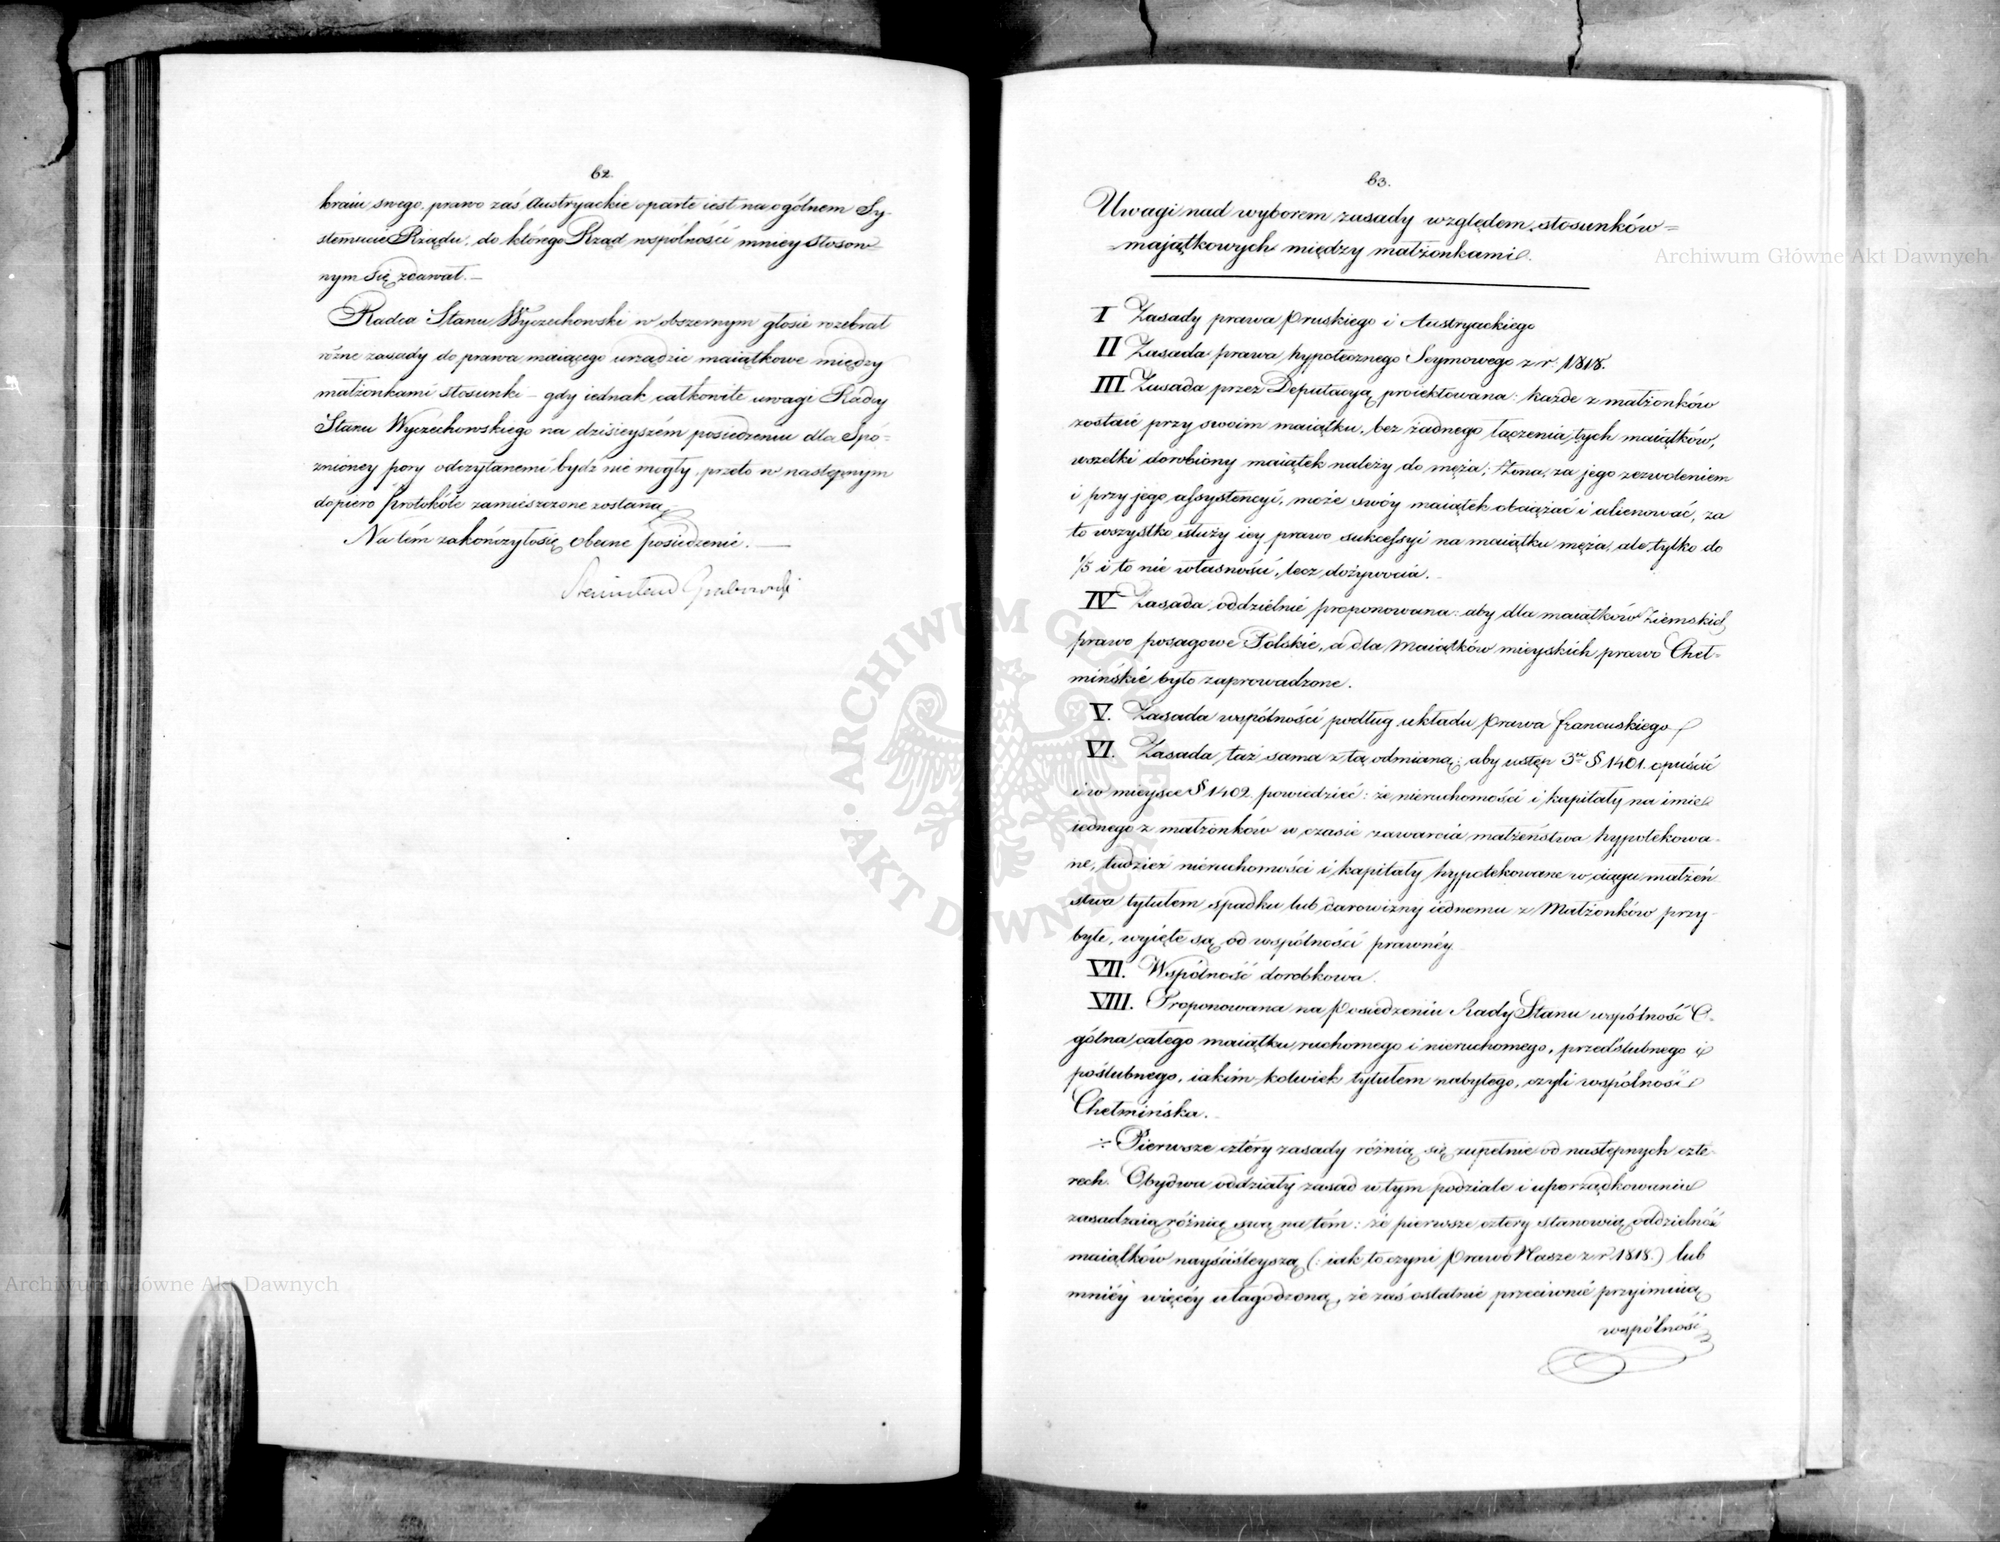 62.
kraiu swego, prawo zaś Austryackie oparte iest na ogólnem Sy-
stemacie Rządu, do którego Rząd wspólności mniey stosow=
nym się zdawał. —
Radca Stanu Wyczechowski w obszernym głosie rozebrał
różne zasady do prawa maiącego urządzić maiątkowe między
małżonkami stosunki — gdy iednak całkowite uwagi Radcy
Stanu Wyczechowskiego na dzisieyszém posiedzeniu dla Spó=
znioney pory odczytanemi bydź nie mogły, przeto w następnym
dopiero Protokóle zamieszczone zostaną.
Na tém zakończyło się obecne posiedzenie. —
Stanisław Grabowski
63.
Uwagi nad wyborem zasady względem stosunków=
=majątkowych między małżonkami.
I Zasady prawa Pruskiego i Austryackiego
II Zasada prawa hypotecznego Seymowego z r. 1818.
III Zasada przez Deputacyą proiektowana: każde z małżonków
zostaie przy swoim maiątku, bez żadnego łączenia tych maiątków,
wszelki dorobiony maiątek należy do męża; żona, za jego zezwoleniem
i przy jego assystencyi, może swóy maiątek obciążać i alienować, za
to wszystko służy iey prawo sukcessyi na maiątku męża, ale tylko do
1/5 i to nie własności, lecz dożywocia.
IV Zasada oddzielnie proponowana: aby dla maiątków Ziemskich
prawo posagowe Polskie, a dla Maiątków mieyskich prawo Cheł-
mińskie było zaprowadzone.
V. Zasada wspólności podług układu Prawa francuskiego
VI. Zasada taż sama z tą odmianą: aby ustęp 3ci § 1401. opuścić
i w mieysce § 1402. powiedzieć: że nieruchomości i kapitały na imie
iednego z małżonków w czasie zawarcia małżeństwa hypotekowa-
ne, tudzież nieruchomości i kapitały hypotekowane w ciągu małżeń
stwa tytułem spadku lub darowizny iednemu z Małżonków przy-
byłe, wyięte są od wspólności prawnéy.
VII. Wspólność dorobkowa.
VIII. Proponowana na Posiedzeniu Rady Stanu wspólność O-
gólna całego maiątku ruchomego i nieruchomego, przedślubnego i
poślubnego, iakim kolwiek tytułem nabytego, czyli wspólność
Chełmińska.
÷ Pierwsze cztéry zasady różnią się zupełnie od następnych czte-
rech. Obydwa oddziały zasad w tym podziale i uporządkowaniu
zasadzaią różnicę swą na tém: że pierwsze cztery stanowią oddzielność
maiątków nayściśleyszą (: iak to czyni Prawo Nasze z r. 1818.) lub
mniéy więcéy ułagodzoną, że zaś ostatnie przeciwnie przyimuią
wspólność
Archiwum Główne Akt Dawnych
ARCHIWUM GŁÓWNE AKT DAWNYCH
Archiwum Główne Akt Dawnych